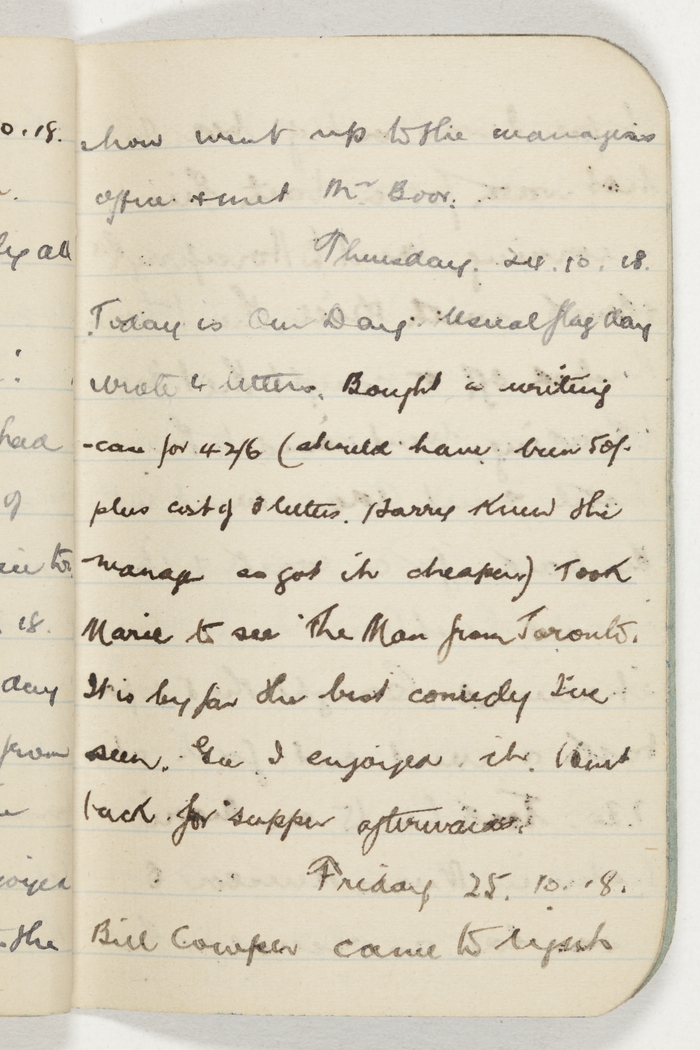 0.18.
show went up to the managers
office & met Mr Boor.
ly all
Thursday. 24.10.18.
Today is Our Day. Usual flag day
wrote 4 letters. Bought a writing
had
-case for 42/6 (should have been 50/-
of
plus cost of 3 letters. Harry knew the
manager so got it cheaper) Took
18.
Marie to see "The Man from Toronto.
day
It is by far the best comedy I've
from
seen. Gee I enjoyed it. Went
back for supper afterwards.
Friday 25.10.18.
the
Bill Cowper came to light